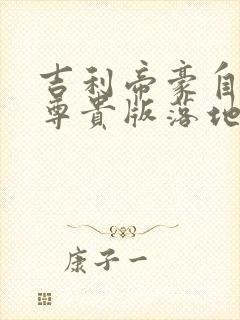 吉利帝豪自
尊贵版落地
康子一